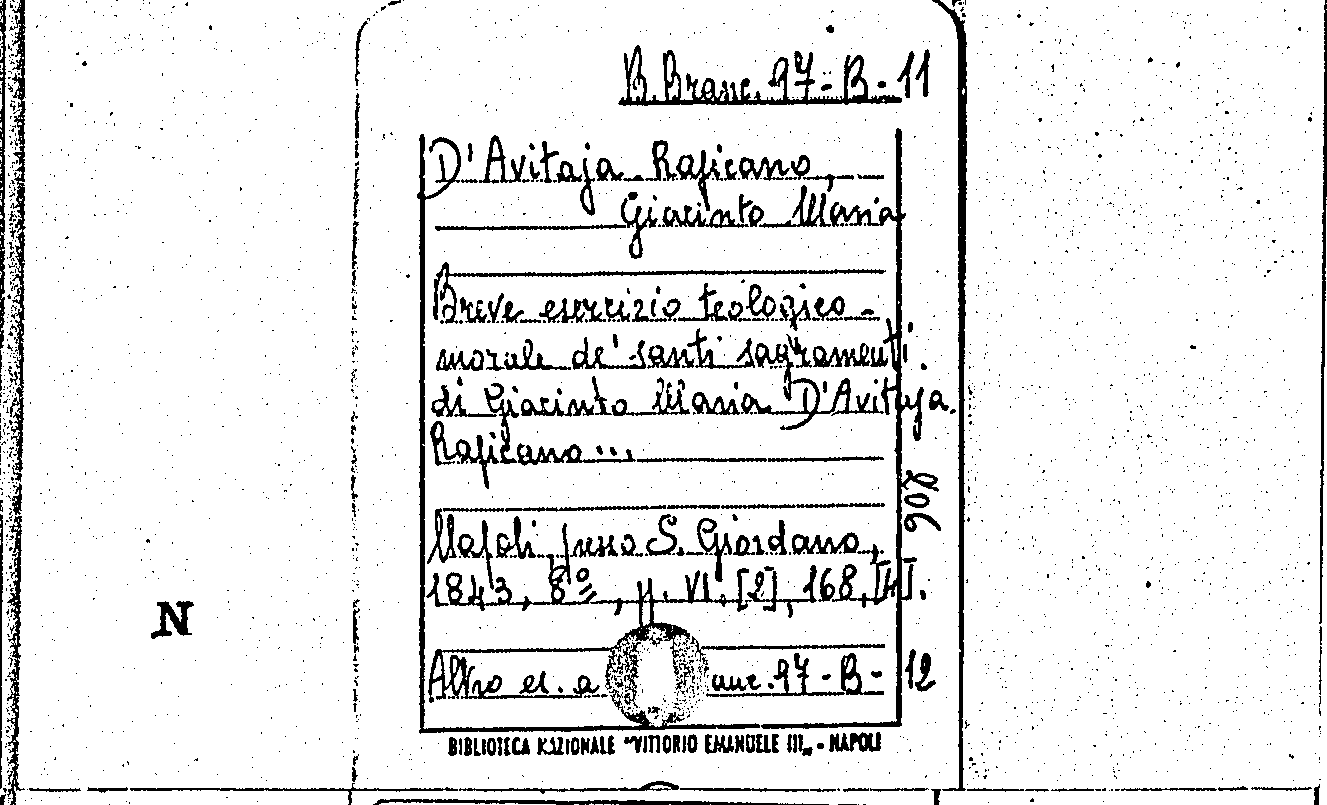 B. Branc. 97-B-11
D'Avitaja Raficano,
Giacinto Maria
Breve esercizio teologico-
morale de' santi sagramenti.
di Giacinto Maria D'Avitaja.
Raficano...
Napoli, presso S. Giordano,
1843, 8º, pp. VI. [2], 168, [4].
Altro es. a anc. 97-B-12
906
N
BIBLIOTECA NAZIONALE "VITTORIO EMANUELE III„ - NAPOLI